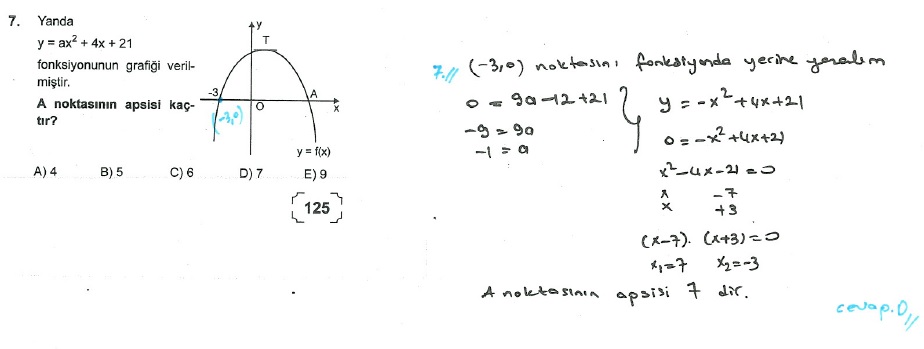 7. Yanda
y = ax² + 4x + 21
fonksiyonunun grafiği veril-
miştir.
A noktasının apsisi kaç-
tır?
y
T
-3
A
O
x
(-3,0)
y = f(x)
A) 4 B) 5 C) 6 D) 7 E) 9
125
7.// (-3,0) noktasını fonksiyonda yerine yazalım
0 = 9a -12 +21
-9 = 9a
-1 = a
y = -x² +4x +21
0 = -x² +4x +21
x² -4x -21 = 0
x -7
x +3
(x-7). (x+3) = 0
x₁=7 x₂=-3
A noktasının apsisi 7 dir.
cevap.D//